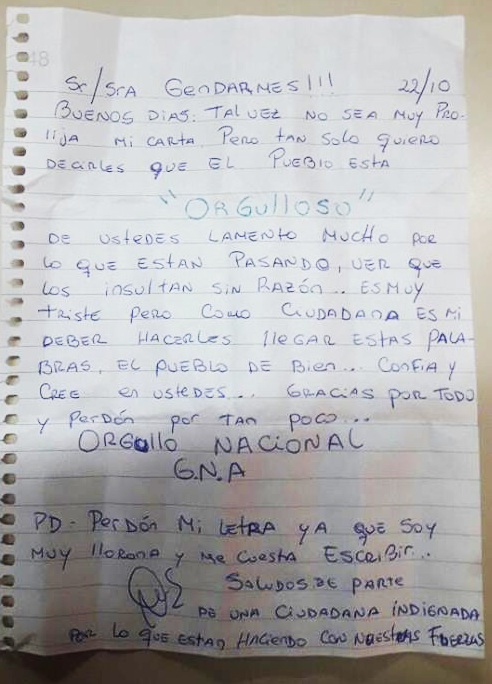 48
Sr/Sra GENDARMES!!! 22/10
BUENOS DIAS. TAL VEZ NO SEA MUY PRO-
lija MI CARTA. Pero TAN SOLO QUIERO
DECIRLES QUE EL PUEBLO ESTA
"ORGULLOSO"
DE USTEDES LAMENTO MUCHO POR
LO QUE ESTAN PASANDO, VER QUE
LOS INSULTAN SIN RAZÓN.. ES MUY
TRISTE PERO COMO CIUDADANA ES MI
DEBER HACERLES LLEGAR ESTAS PALA-
BRAS, EL PUEBLO DE BIEN... CONFIA Y
CREE EN USTEDES... GRACIAS POR TODO
Y PERDÓN POR TAN POCO...
ORGULLO NACIONAL
G.N.A
PD- PERDÓN MI LETRA YA QUE SOY
MUY LLORONA Y ME CUESTA ESCRIBIR...
SALUDOS DE PARTE
DE UNA CIUDADANA INDIGNADA
POR LO QUE ESTAN HACIENDO CON NUESTRAS FUERZAS